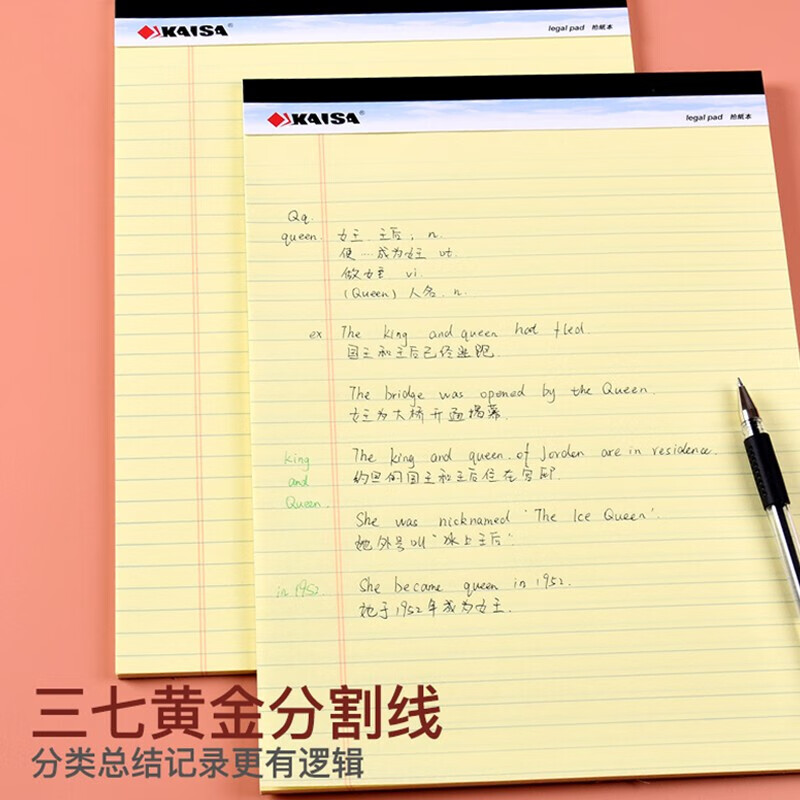 KAISA®
legal pad 拍纸本
KAISA®
legal pad 拍纸本
Qq.
queen. 女王. 王后; n.
使…成为女王 vt.
做女王 vi.
(Queen) 人名. n.
ex The king and queen had fled.
国王和王后已经逃跑.
The bridge was opened by the Queen.
女王为大桥开通揭幕.
king
and
Queen.
The king and queen of Jorden are in residence.
约旦的国王和王后住在宫邸.
She was nicknamed 'The Ice Queen'.
她外号叫"冰上王后".
in 1952. She became queen in 1952.
她于1952年成为女王.
三七黄金分割线
分类总结记录更有逻辑